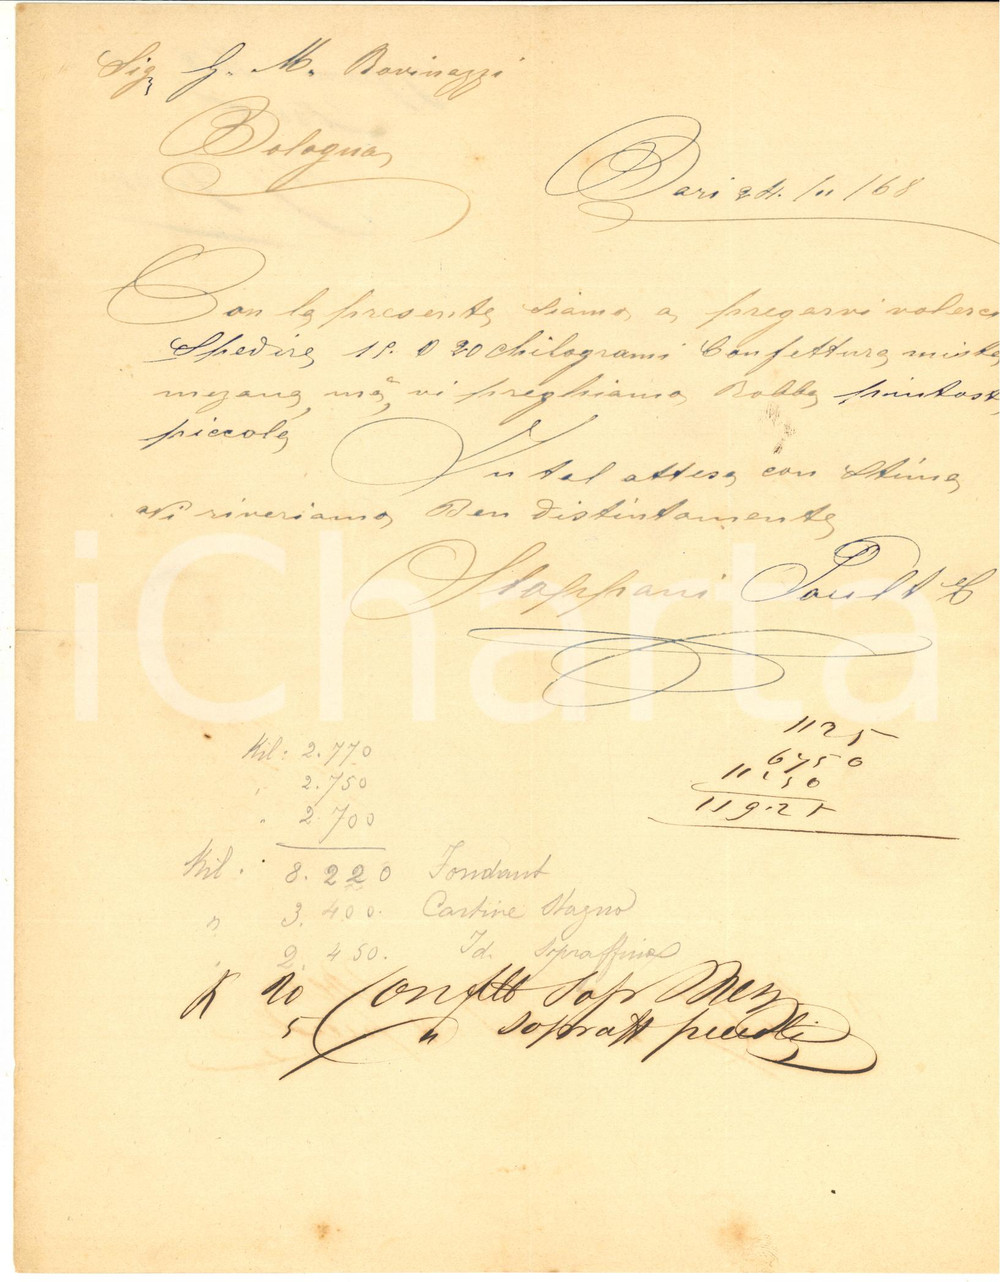 Sig G. M. Bovinazzi
Bologna
Bari 24. /11 /68
Con la presente siamo a pregarvi volerci
Spedire 15. O 20 chilogrami Confettura mista
mezana, mà, vi preghiamo Robba piutost
piccola
In tal attesa con Stima
Vi riveriamo Ben distintamente
Stoppani Pault C
iCharta
1125
Kil: 2.770
6750
2.750
1150
2.700
119.25
Kil. 8.220 Fondant
" 3.400. Cartine Stagno
2.450. Id. sopraffino
K 20 Confett Sop Mez
5 " sopraff piccoli